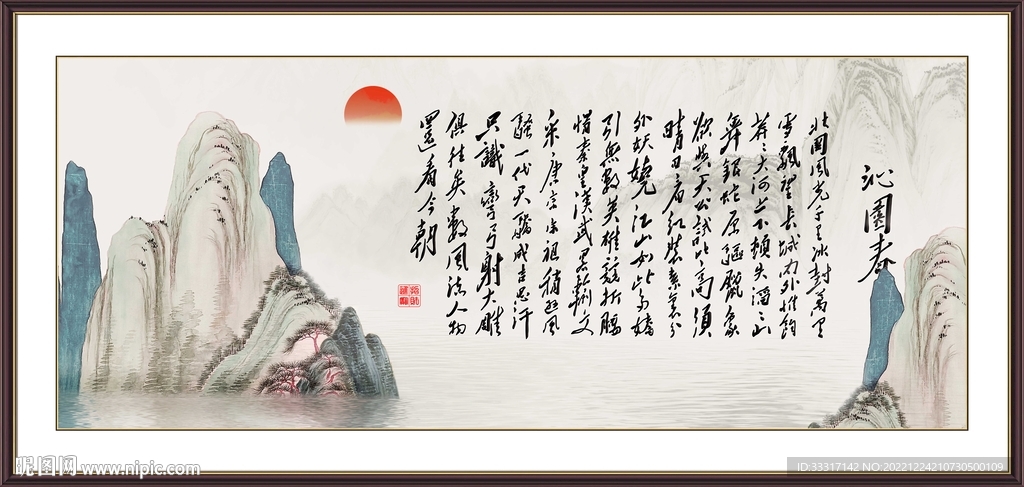 沁園春
北國風光千里冰封萬里
雪飄望長城内外惟餘
莽莽大河上下頓失滔滔山
舞銀蛇原驅臘象
欲與天公試比高須
晴日看紅裝素裹分
外妖嬈江山如此多嬌
引無數英雄競折腰
惜秦皇漢武略輸文
采唐宗宋祖稍遜風
騷一代天驕成吉思汗
只識彎弓射大雕
俱往矣數風流人物
還看今朝
昵图网 www.nipic.com
ID:33317142 NO:20221224210730500109